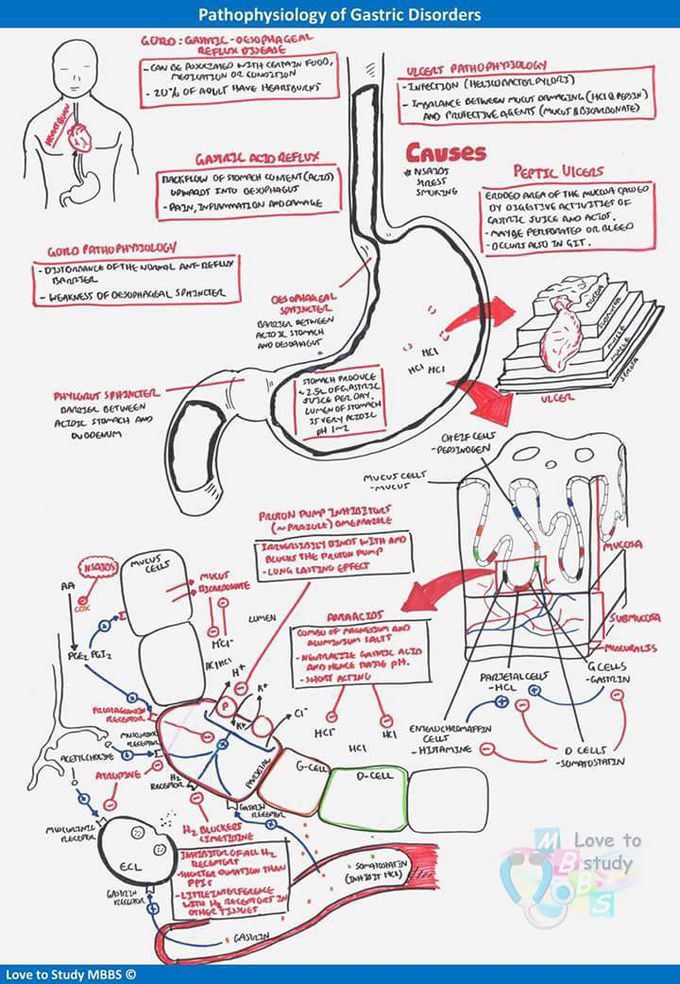 Pathophysiology of Gastric Disorders
GORD: GASTRIC-OESOPHAGEAL
REFLUX DISEASE
- CAN BE ASSOCIATED WITH CERTAIN FOOD,
MEDICATION OR CONDITION
- 20% OF ADULT HAVE HEARTBURNS
HEARTBURN
ULCERS PATHOPHYSIOLOGY
- INFECTION (HELICOBACTER PYLORI)
- IMBALANCE BETWEEN MUCUS DAMAGING (HCl & PEPSIN)
AND PROTECTIVE AGENTS (MUCUS & BICARBONATE)
CAUSES
* NSAIDS
STRESS
SMOKING
GASTRIC ACID REFLUX
BACKFLOW OF STOMACH CONTENT (ACID)
UPWARDS INTO OESOPHAGUS
- PAIN, INFLAMMATION AND DAMAGE
PEPTIC ULCERS
ERODED AREA OF THE MUCOSA CAUSED
BY DIGESTIVE ACTIVITIES OF
GASTRIC JUICE AND ACIDS.
- MAYBE PERFORATED OR BLEED
- OCCURS ALSO IN GIT.
GORD PATHOPHYSIOLOGY
- DISTORBANCE OF THE NORMAL ANTI-REFLUX
BARRIER
- WEAKNESS OF OESOPHAGEAL SPHINCTER
OESOPHAGEAL
SPHINCTER
BARRIER BETWEEN
ACIDIC STOMACH
AND OESOPHAGUS
HCl
HCl HCl
MUCOSA
SUBMUCOSA
MUSCLE
MUSCLE
SEROSA
ULCER
STOMACH PRODUCE
~2.5L OF GASTRIC
JUICE PER DAY.
LUMEN OF STOMACH
IS VERY ACIDIC
PH 1-2
PYLORUS SPHINCTER
BARRIER BETWEEN
ACIDIC STOMACH AND
DUODENUM
CHEIF CELLS
- PEPSINOGEN
MUCUS CELLS
- MUCUS
MUCOSA
SUBMUCOSA
MUSCULARIS
PROTON PUMP INHIBITORS
(~PRAZOLE) OMEPRAZOLE
IRREVERSIBLY BINDS WITH AND
BLOCKS THE PROTON PUMP
- LONG LASTING EFFECT
NSAIDS
AA
COX
PGE2 PGI2
MUCUS
CELLS
MUCUS
BICARBONATE
LUMEN
HCl
H+
P
K+
K+
Cl-
ANTACIDS
COMBO OF MAGNESIUM AND
ALUMINIUM SALTS
- NEUTRALIZE GASTRIC ACID
AND HENCE RAISE PH.
- SHORT ACTING
HCl
HCl
HCl
PARIETAL CELLS
- HCL
G CELLS
- GASTRIN
ENTEROCHROMAFFIN
CELLS
- HISTAMINE
D CELLS
- SOMATOSTATIN
PROSTAGLANDIN
RECEPTOR
MUSCARINIC
RECEPTOR
ACETYLCHOLINE
ATROPINE
H2
RECEPTOR
PARIETAL
G-CELL
D-CELL
GASTRIN
RECEPTOR
MUSCARINIC
RECEPTOR
ECL
GASTRIN
RECEPTOR
H2 BLOCKERS
CIMETIDINE
INHIBITOR OF ALL H2
RECEPTORS
- SHORTER DURATION THAN
PPIs
- LITTLE INTERFERENCE
WITH H2 RECEPTORS IN
OTHER TISSUES
SOMATOSTATIN
(INHIBIT HCl)
GASTRIN
Love to
study
M
B
B
S
Love to Study MBBS ©